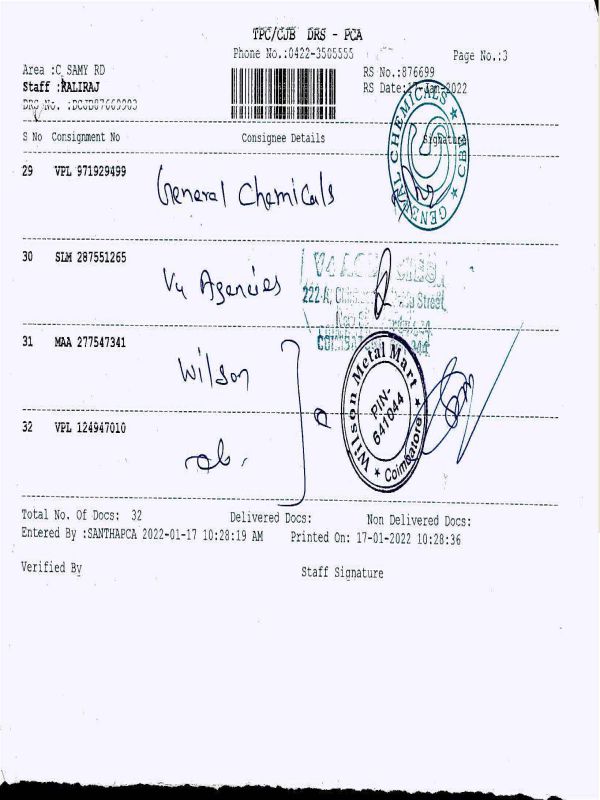 TPC/CJB DRS - PCA
Phone No.:0422-3505555
Page No.:3
Area :C SAMY RD
RS No.:876699
Staff :KALIRAJ
RS Date:17-Jan-2022
DRS No. :
S No Consignment No Consignee Details Signature
29 VPL 971929499 General Chemicals
GENERAL CHEMICALS
CBE
30 SLM 287551265 V4 Agencies
222-A, Street,
31 MAA 277547341 Wilson
Wilson Metal Mart
PIN-
641044
Coimbatore
32 VPL 124947010
Total No. Of Docs: 32 Delivered Docs: Non Delivered Docs:
Entered By :SANTHAPCA 2022-01-17 10:28:19 AM Printed On: 17-01-2022 10:28:36
Verified By Staff Signature